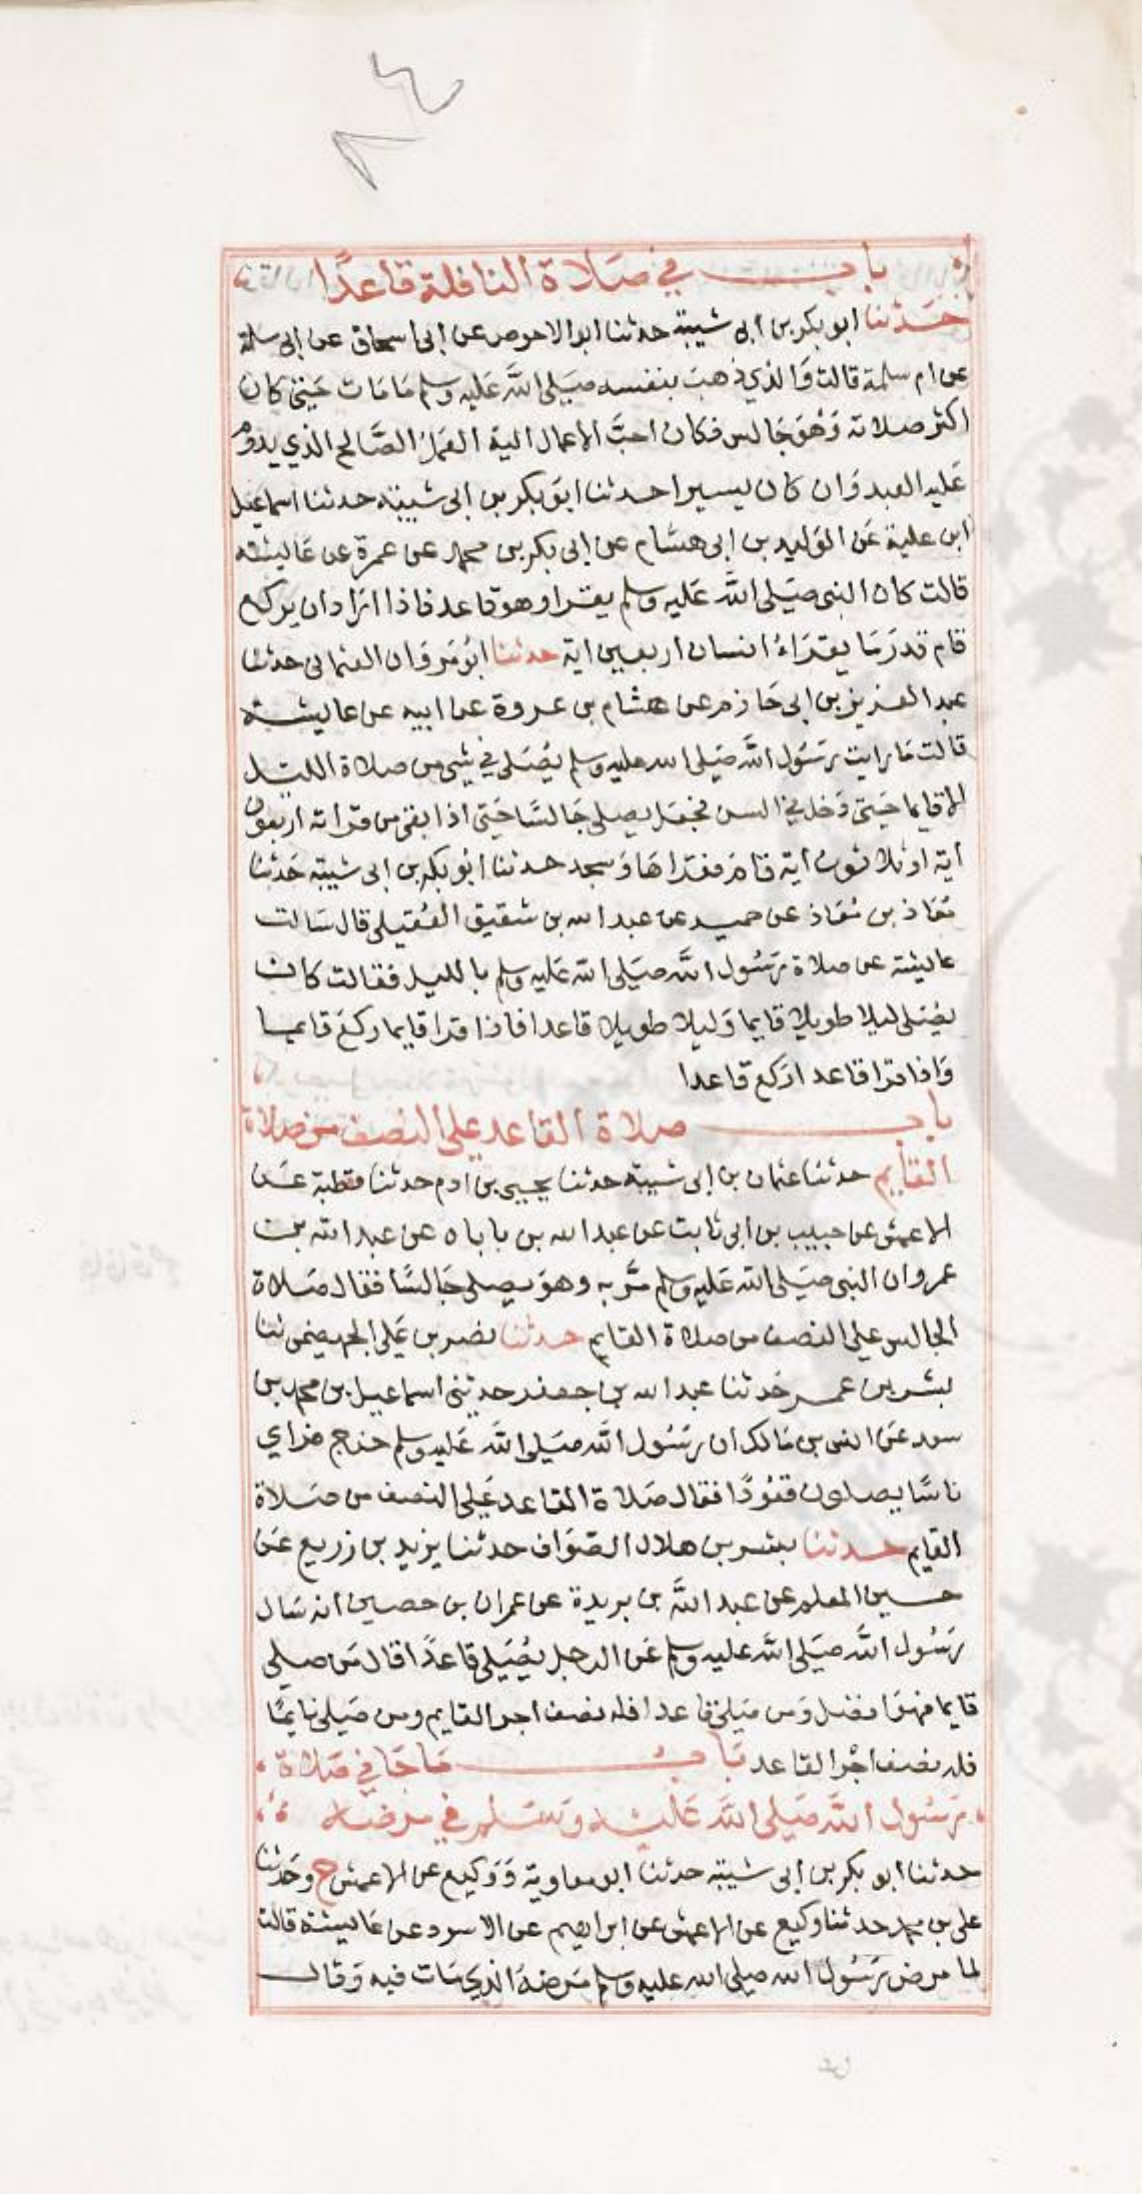 ٨٤
باب في صلاة النافلة قاعدًا
حدثنا ابو بكر بن ابي شيبة حدثنا ابو الاحوص عن ابي اسحاق عن ابي سلمة
عن ام سلمة قالت وَالذي ذهبَ بنفسه صَلى الله عَليه وسلم مَا مَات حَتى كان
اكثر صلاته وَهْوَ جَالس فكان احبَّ الاعمال اليه العَمَلُ الصَّالح الذي يدوم
عَليه العبد وَان كان يسيرا حدثنا ابوَ بكر بن ابي شيبة حدثنا اسماعيل
ابن علية عَن الوَليد بن ابي هشام عن ابي بكر بن محمد عن عمرة عن عَاليشة
قالت كان النبي صَلى الله عَليه وسلم يقرا وهو قاعد فاذا ارَاد ان يركع
قام قدرَ مَا يقرَاءُ انسان اربعين اية حدثنا ابُو مَروَان العثماني حدثنا
عبد العزيز بن ابي حَازم عن هشام بن عروة عن ابيه عن عاليشة
قالت مَا رايت رَسُول اللَّه صَلى الله عليه وسلم يُصَلي في شي من صلاة الليل
الا قايما حَتى دَخل في السن فجَعَل يصلي جَالسًا حَتى اذا بقي من قراته اربعون
اية او ثلاثون اية قامَ فقراهَا وَسجد حدثنا ابُو بكر بن ابي شيبة حَدثنا
مُعَاذ بن مُعَاذ عن حميد عن عبد الله بن شقيق العُقيلي قال سَالت
عاليشة عن صلاة رَسُول اللَّه صَلى الله عَليه وسلم بالليل فقالت كان
يُصَلي ليلا طويلا قايما وَليلا طويلا قاعدا فاذا قرا قايما ركعَ قايما
وَاذا قرا قاعدا ركع قاعدا
باب صلاة القاعد على النصف من صلاة
القايم حدثنا عثمان بن ابي شيبة حدثنا يحيى بن ادم حدثنا قطبة عَن
الاعمش عن حبيب بن ابي ثابت عن عبد الله بن باباه عن عبد الله بن
عمرو ان النبي صَلى الله عَليه وسلم مَّر به وهوَ يصلي جَالسًا فقال صَلاة
الجالس على النصف من صلاة القايم حدثنا نصر بن عَلي الجهضمي ثنا
بشر بن عمر حَدثنا عبد الله بن جعفر حدثني اسماعيل بن محمد بن
سعد عَن انس بن مَالك ان رَسُول اللَّه صَلى اللَّه عَليه وسلم خرج فراي
ناسًا يصلون قعُودًا فقال صَلاة القاعد عَلى النصف من صَلاة
القايم حدثنا بشر بن هلال الصَوَاف حدثنا يزيد بن زريع عَن
حسين المعلم عن عبد اللَّه بن بريدة عن عمران بن حصين انه سَال
رَسُول اللَّه صَلى اللَّه عليه وسلم عَن الرجل يُصَلي قاعدًا قال مَن صلى
قايما فهوَ افضل وَمن صَلى قاعدا فله نصف اجر القايم ومن صَلى نايمًا
فله نصف اجْر القاعد بَابُ مَا جَا في صَلاة
رَسُول اللَّه صَلى اللَّه عَليْه وَسَلم في مرضه
حدثنا ابو بكر بن ابي شيبة حدثنا ابو معاوية وَوَكيع عن الاعمش ح وحَدثنا
علي بن محمد حدثنا وكيع عن الاعمش عن ابراهيم عن الاسود عن عَاليشة قالت
لما مرض رَسُول الله صلى الله عليه وسلم مَرضهُ الذي مَات فيه وَقال